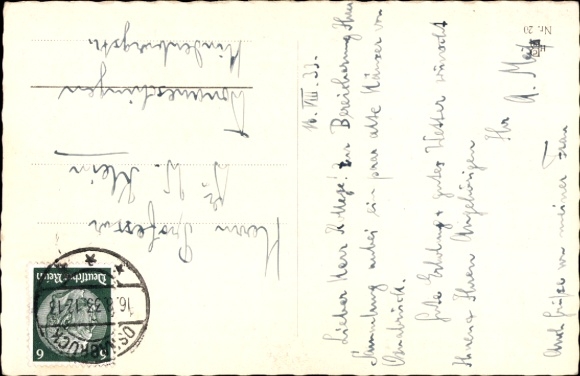 16. VIII. 33.
Lieber Herr Kollege! Zur Bereicherung Ihrer
Sammlung anbei ein paar alte Häuser von
Osnabrück.
Gute Erholung u. gutes Wetter wünscht
Ihnen u. Ihren Angehörigen
Ihr A.
Auch Grüße von meiner Frau
Nr. 20
Herrn Professor
Dr. W. Klein
Donaueschingen
Hindenburgstr.
Deutsches Reich
6 6
OSNABRÜCK
16.8.33.12-13